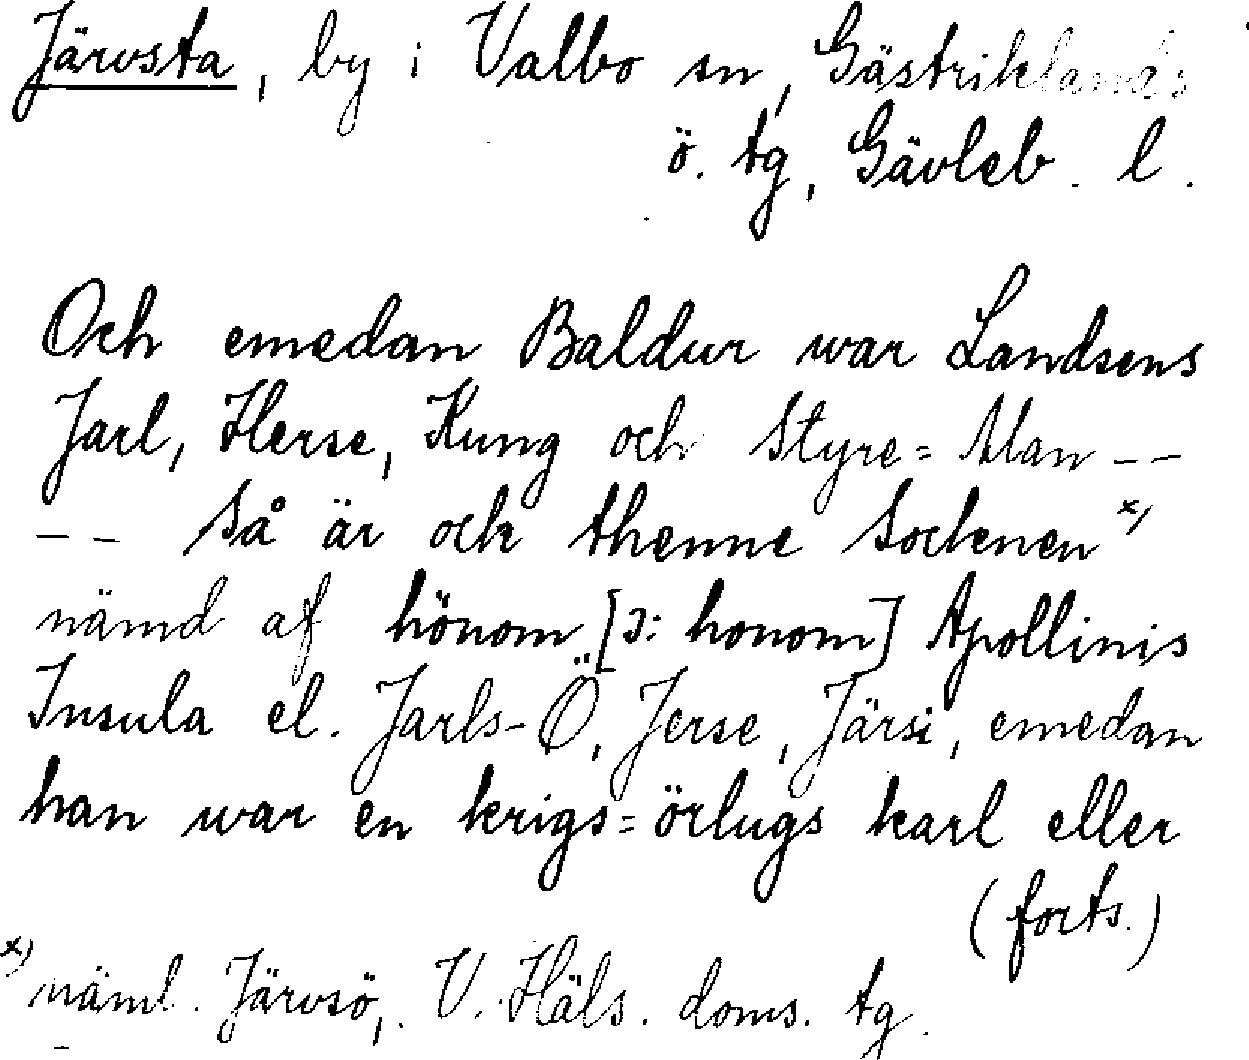 Järvsta, by i Valbo sn, Gästriklands
ö. tg, Gävleb. l.
Och emedan Baldur war Landsens
Jarl, Herse, Kung och Styre= Man --
-- Så är ock thenne Socknen x)
nämd af hönom [ɔ: honom] Apollinis
Insula el. Jarls-Ö, Jerse, Järsi, emedan
han war en krigs=örlugs karl eller
(forts.)
x) näml. Järvsö, V. Häls. doms. tg.